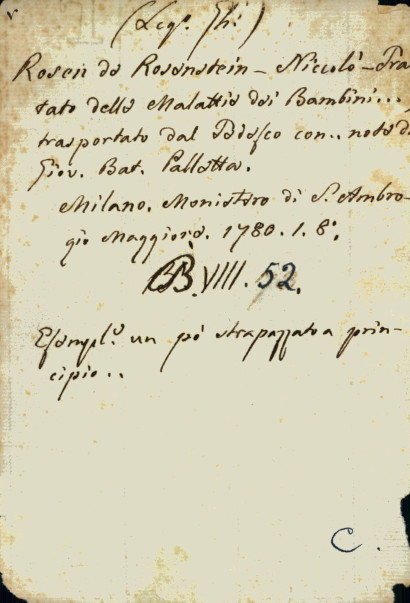 (Leg. Gh.)
Rosen de Rosenstein - Niccolò - Tra-
tato delle Malattie dei Bambini...
trasportato dal Tedesco con.. note di
Giov. Bat. Palletta.
Milano. Monistero di S. Ambro-
gio Maggiore. 1780. 1. 8°.
BB. VIII. 52.
Esempl.e un pò strapazzato a prin-
cipio..
C.